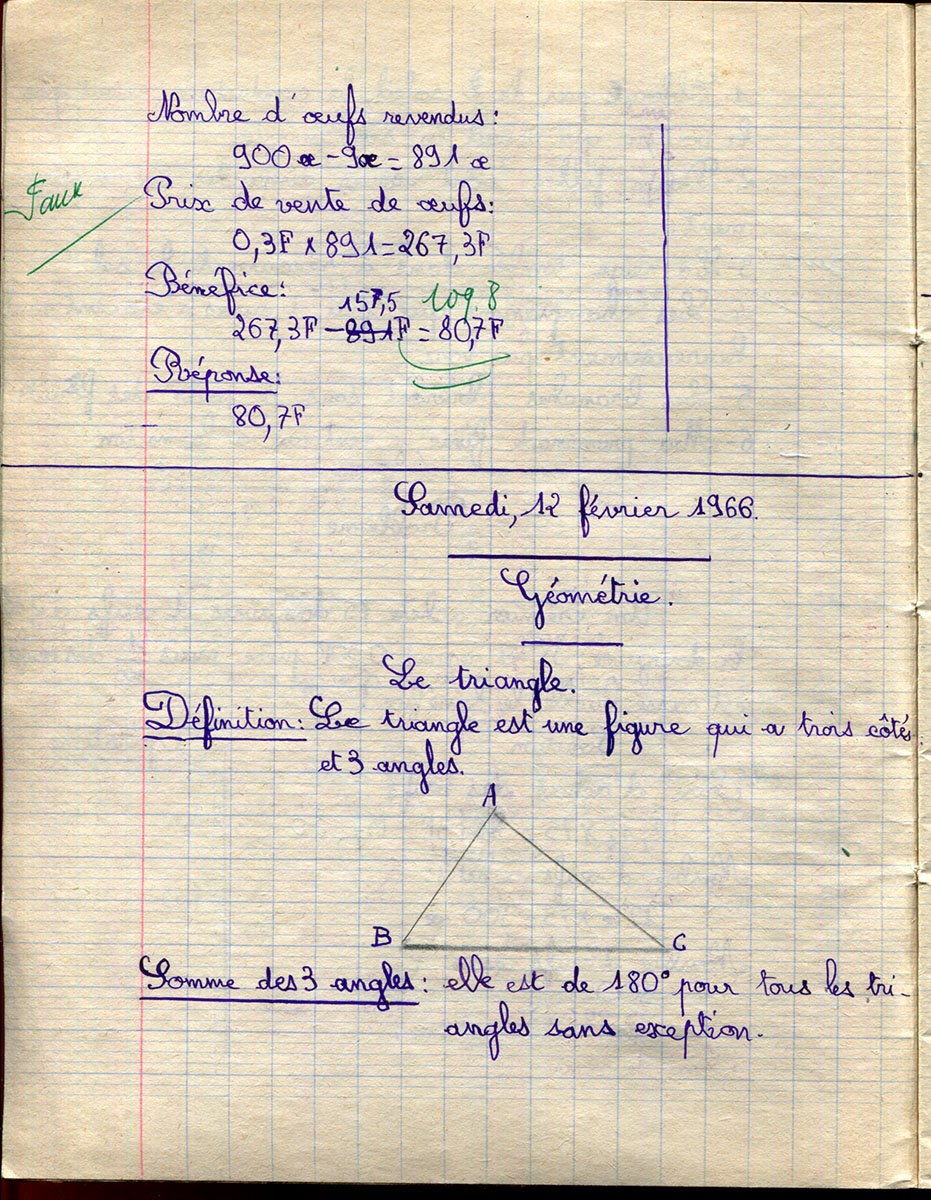 Nombre d'œufs revendus:
900 œ - 9œ = 891 œ
Faux
Prix de vente de œufs:
0,3F x 891 = 267,3F
Bénéfice:
157,5 109.8
267,3F - 891F = 80,7F
Réponse:
80,7F
Samedi, 12 février 1966.
Géométrie.
Le triangle.
Définition: Le triangle est une figure qui a trois côtés
et 3 angles.
A
B C
Somme des 3 angles: elle est de 180° pour tous les tri-
angles sans exception.